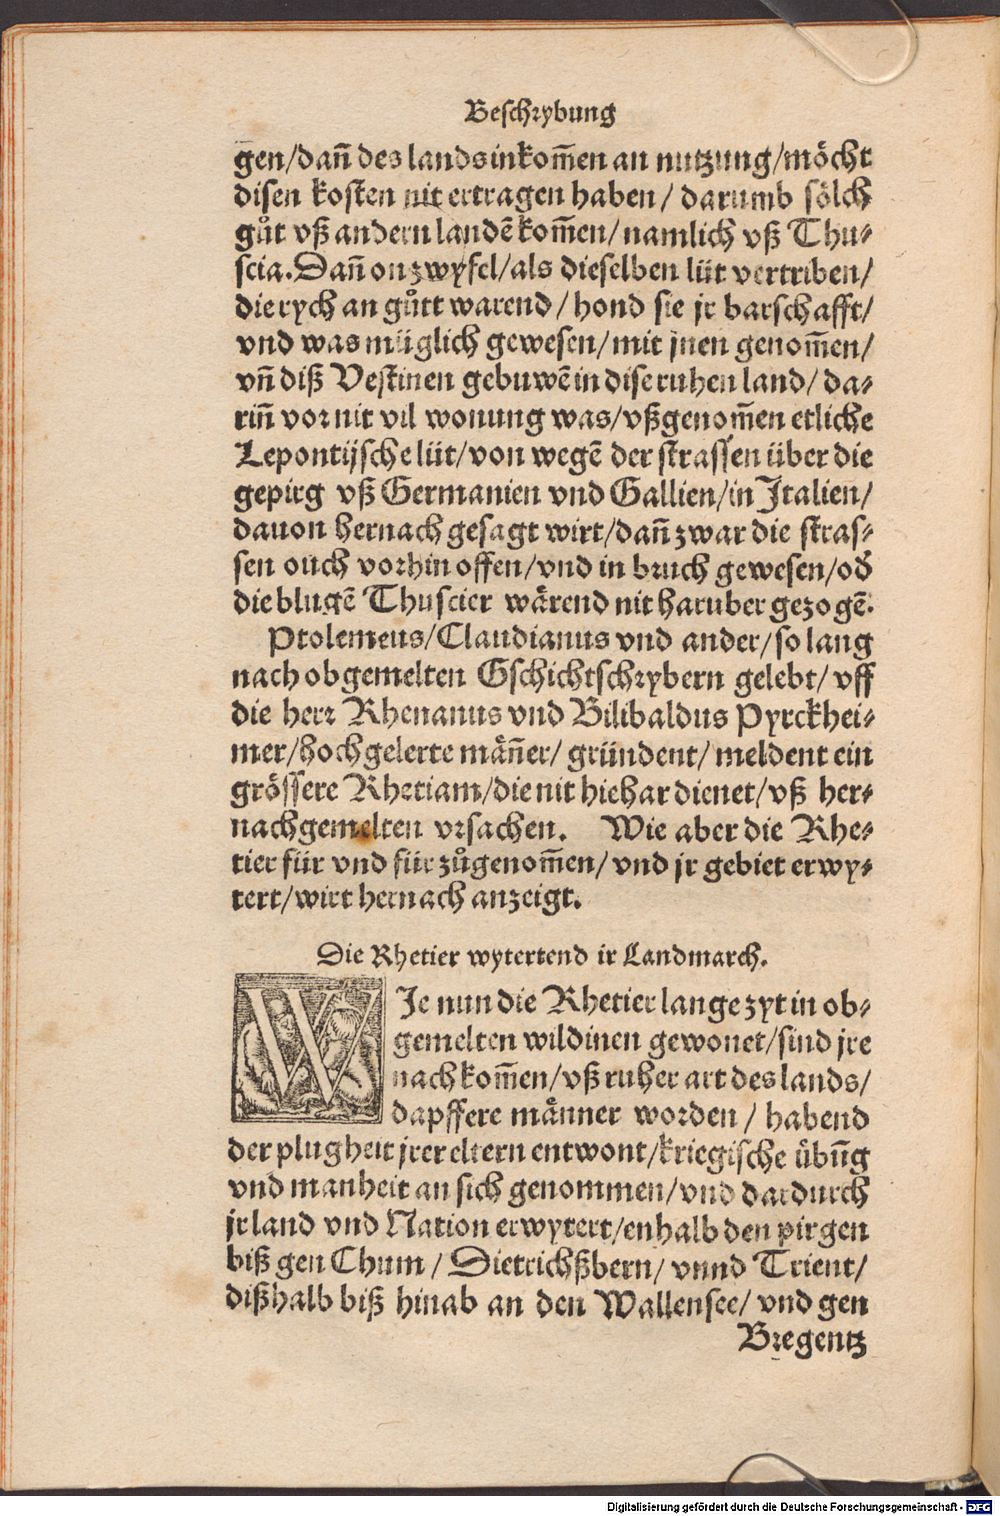 Beschrybung
gen/dañ des lands inkom̃en an nutzung/möcht
disen kosten nit ertragen haben/ darumb sölch
gůt vß andern landẽ kom̃en/ namlich vß Thu⸗
scia. Dañ on zwyfel/ als dieselben lüt vertriben/
die rych an gůtt warend/ hond sie jr barschafft/
vnd was müglich gewesen/ mit jnen genom̃en/
vñ diß Vestinen gebuwẽ in dise ruhen land/ da⸗
riñ vor nit vil wonung was/ vßgenom̃en etliche
Lepontijsche lüt/ von wegẽ der strassen über die
gepirg vß Germanien vnd Gallien/ in Italien/
dauon hernach gesagt wirt/ dañ zwar die stras⸗
sen ouch vorhin offen/ vnd in bruch gewesen/ od̃
die blugẽ Thuscier wärend nit haruber gezogẽ.
Ptolemeus/ Claudianus vnd ander/ so lang
nach obgemelten Gschichtschrybern gelebt/ vff
die herr Rhenanus vnd Bilibaldus Pyrckhei⸗
mer/ hochgelerte mäñer/ gründent/ meldent ein
grössere Rhetiam/ die nit hiehar dienet/ vß her⸗
nachgemelten vrsachen. Wie aber die Rhe⸗
tier für vnd für zůgenom̃en/ vnd jr gebiet erwy⸗
tert/ wirt hernach anzeigt.
Die Rhetier wytertend ir Landmarch.
WJe nun die Rhetier lange zyt in ob⸗
gemelten wildinen gewonet/ sind jre
nachkom̃en/ vß ruher art des lands/
dapffere männer worden/ habend
der plugheit jrer eltern entwont/ kriegische übũg
vnd manheit an sich genommen/ vnd dardurch
jr land vnd Nation erwytert/ enhalb den pirgen
biß gen Chum/ Dietrichßbern/ vnnd Trient/
dißhalb biß hinab an den Wallensee/ vnd gen
Bregentz
Digitalisierung gefördert durch die Deutsche Forschungsgemeinschaft - DFG